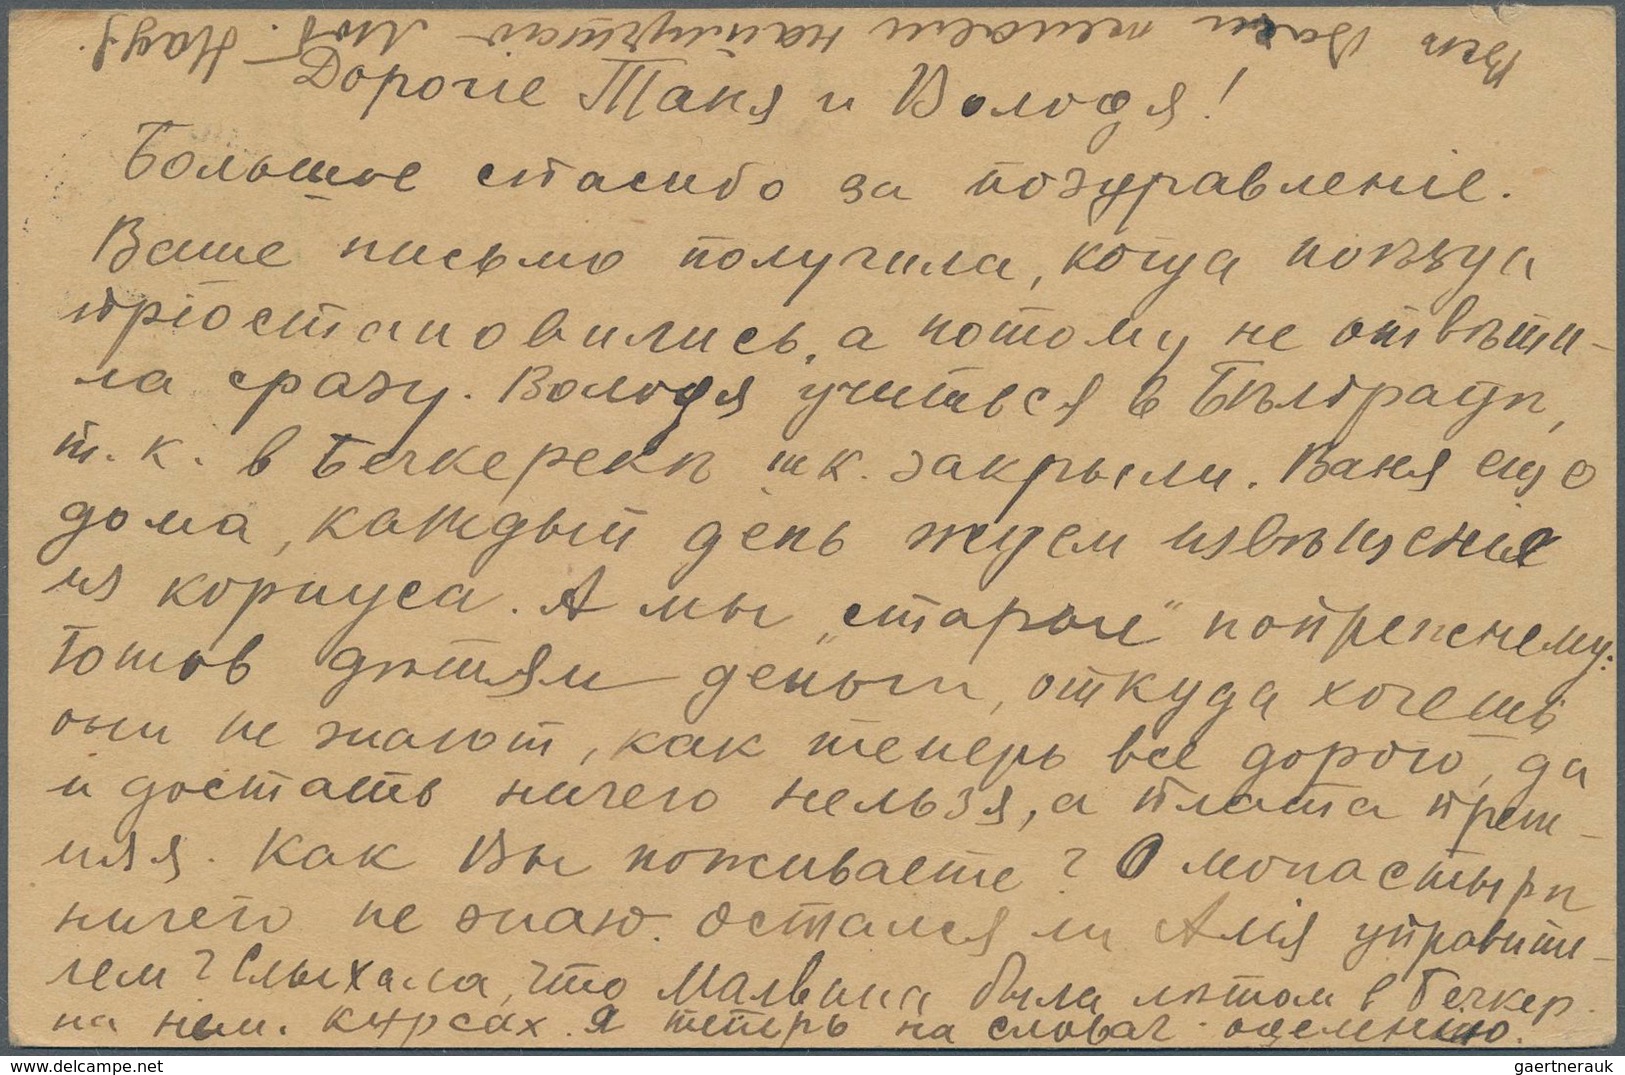 Дорогіе Таня и Володя!
Большое спасибо за поздравленіе.
Ваше письмо получила, когда поѣзда
пріостановились, а потому не отвѣти-
ла сразу. Володя учиться в Бѣлградѣ,
т. к. в Бечкерекѣ шк. закрыли. Ваня еще
дома, каждый день ждем извѣщенія
из корпуса. А мы „старые" попрежнему:
готов дѣтям деньги, откуда хочешь
они не знают, как теперь все дорого, да
и достать ничего нельзя, а плата преж-
няя. Как Вы поживаете? О монастырѣ
ничего не знаю. остался ли управите-
лем? Слыхала, что Мальвина была лѣтом в Бечкер.
на нѣм. курсах. я теперь на словач.
Всѣ Вам желаем найлучшаго Люб. Надя.
gaertnerauk